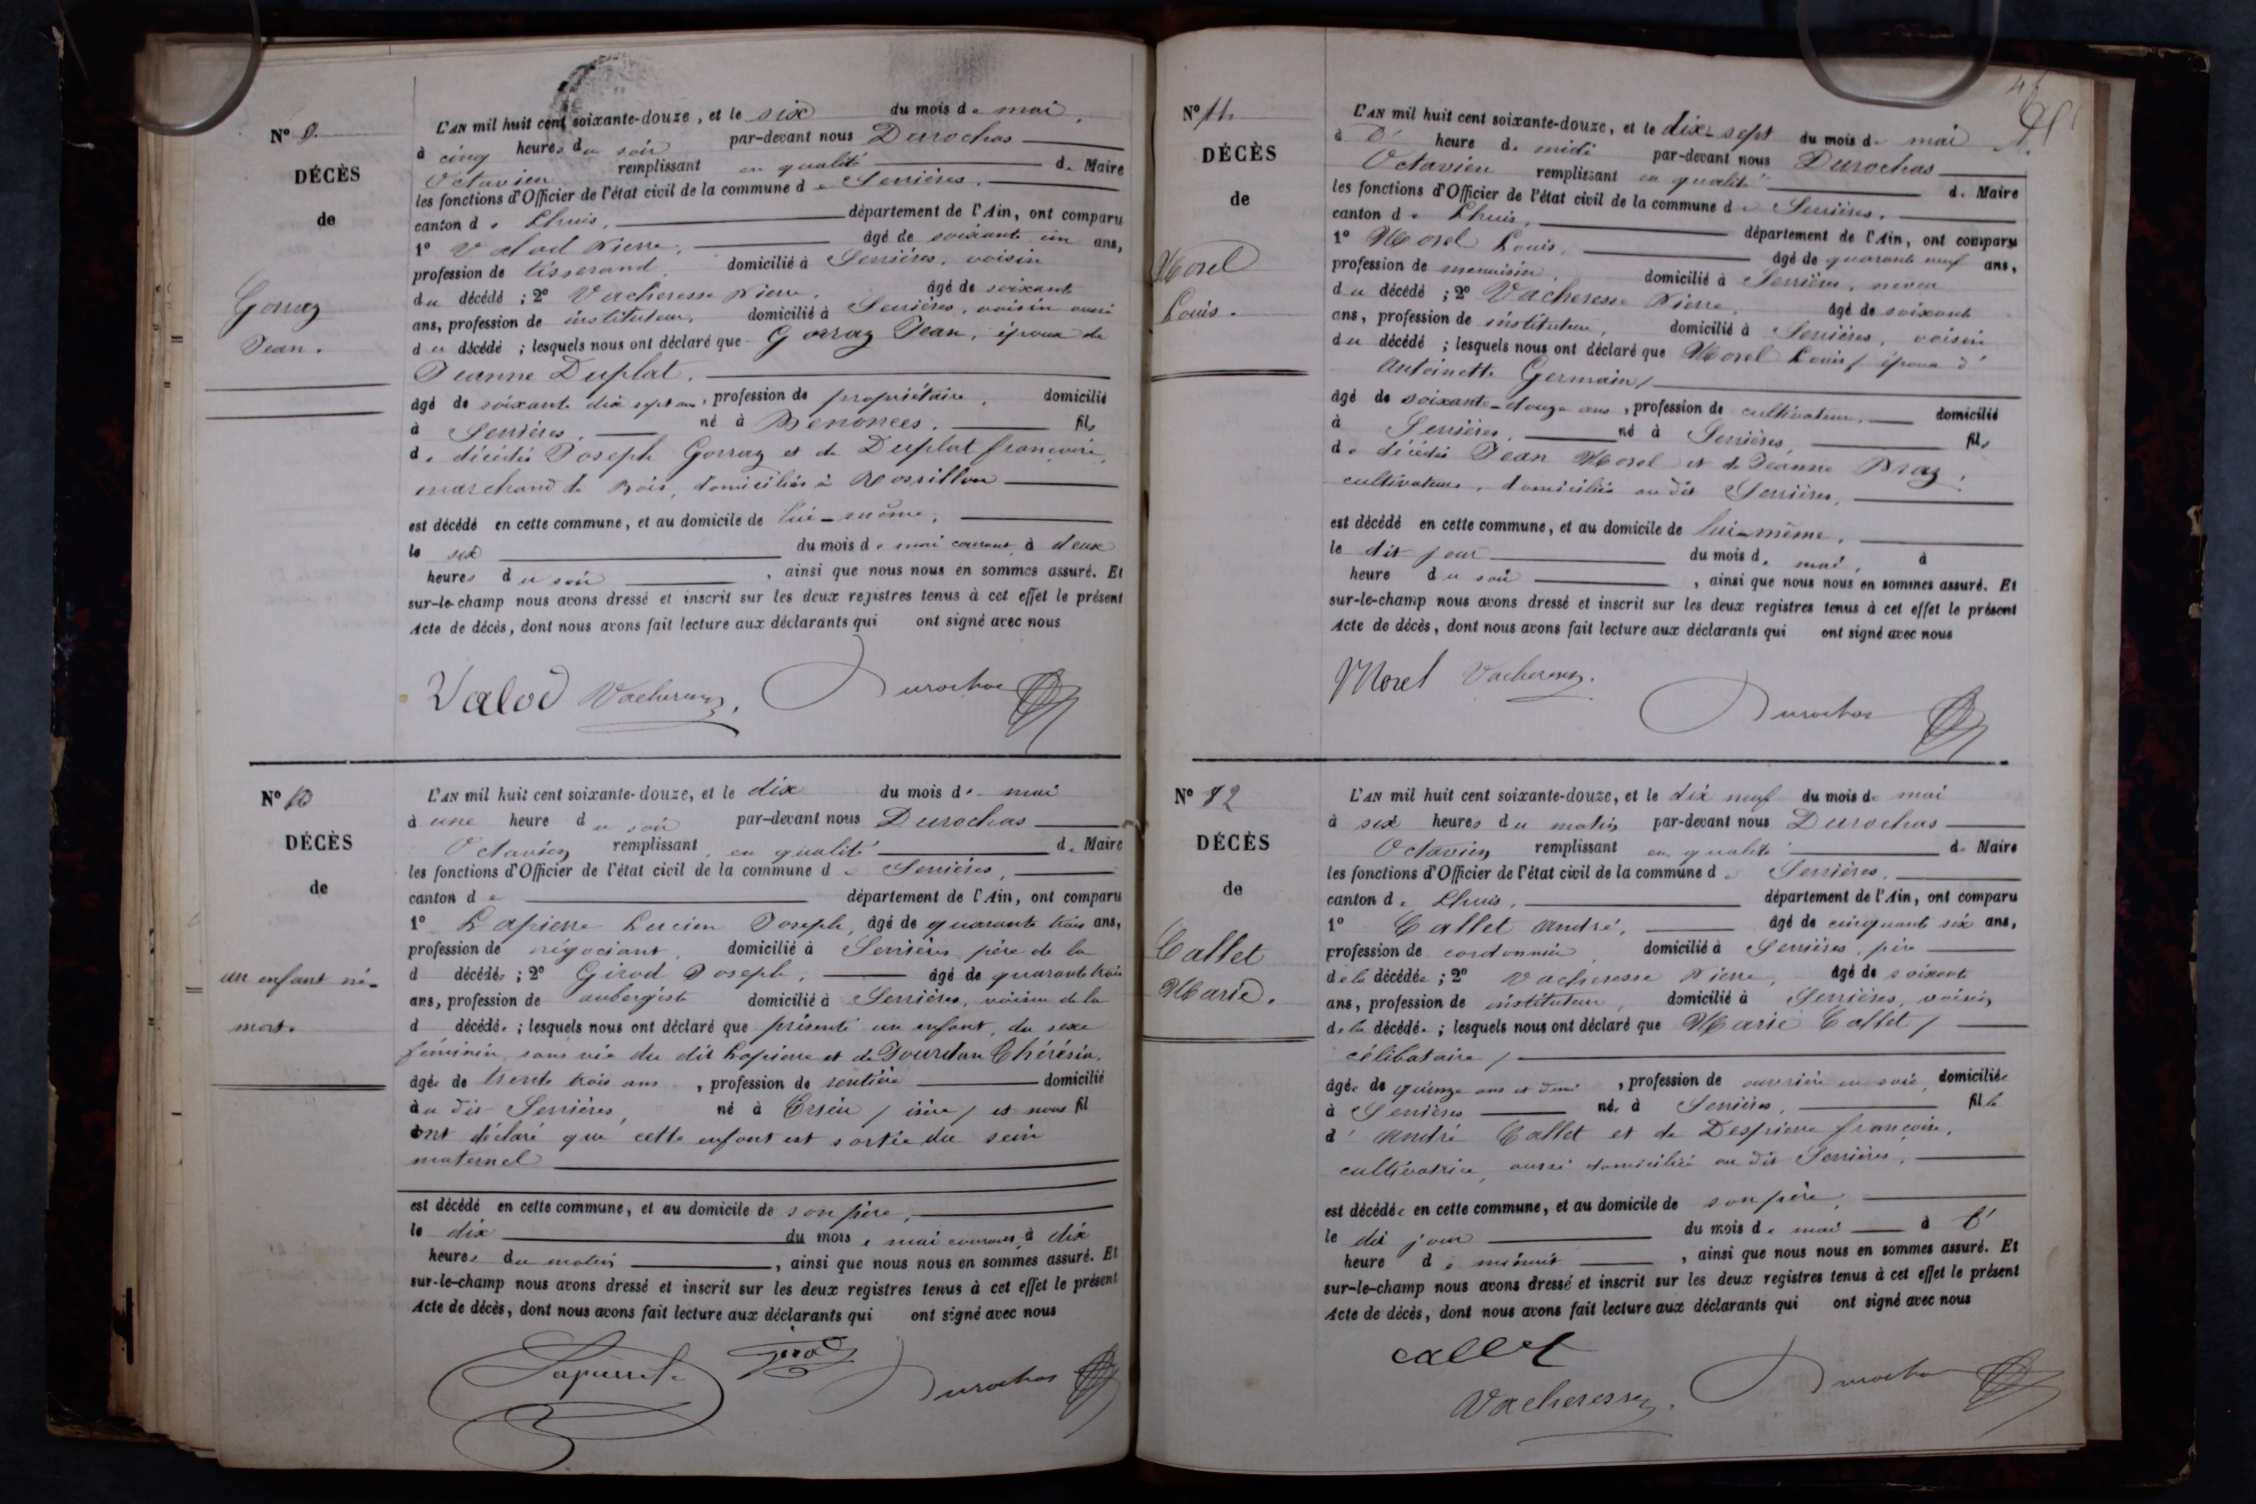 N° 9.
DÉCÈS
de
Gorraz
Jean.
L'AN mil huit cent soixante-douze, et le six du mois de mai,
à cinq heures du soir par-devant nous Durochas
Octavien remplissant en qualité de Maire
les fonctions d'Officier de l'état civil de la commune de Serrières.
canton de Lhuis, département de l'Ain, ont comparu
1° Valod Pierre, âgé de soixante un ans,
profession de tisserand, domicilié à Serrières, voisin
du décédé ; 2° Vacheresse Pierre, âgé de soixante
ans, profession de instituteur, domicilié à Serrières, voisin aussi
du décédé ; lesquels nous ont déclaré que Gorraz Jean, époux de
Jeanne Duplat.
âgé de soixante dix sept ans, profession de propriétaire, domicilié
à Serrières, né à Benonces, fils
de décédés Joseph Gorraz et de Duplat françoise,
marchand de bois, domiciliés à Rossillon
est décédé en cette commune, et au domicile de lui-même,
le six du mois de mai courant à deux
heures du soir, ainsi que nous nous en sommes assuré. Et
sur-le-champ nous avons dressé et inscrit sur les deux registres tenus à cet effet le présent
Acte de décès, dont nous avons fait lecture aux déclarants qui ont signé avec nous
Valod Vacheresse. Durochas
N° 10
DÉCÈS
de
un enfant né-
mort.
L'AN mil huit cent soixante-douze, et le dix du mois de mai
à une heure du soir par-devant nous Durochas
Octavien remplissant en qualité de Maire
les fonctions d'Officier de l'état civil de la commune de Serrières,
canton de département de l'Ain, ont comparu
1° Lapierre Lucien Joseph, âgé de quarante trois ans,
profession de négociant, domicilié à Serrières père de la
d décédée ; 2° Girod Joseph, âgé de quarante trois
ans, profession de aubergiste domicilié à Serrières, voisin de la
d décédée ; lesquels nous ont déclaré que présenté un enfant, du sexe
féminin, sans vie du dit Lapierre et de Jourdan Thérésia,
âgée de trente trois ans, profession de rentière domicilié
à au dit Serrières, né à (isère) et nous fil
ont déclaré que cette enfant est sortie du sein
maternel
est décédé en cette commune, et au domicile de son père,
le dix du mois de mai courant à dix
heures du matin, ainsi que nous nous en sommes assuré. Et
sur-le-champ nous avons dressé et inscrit sur les deux registres tenus à cet effet le présent
Acte de décès, dont nous avons fait lecture aux déclarants qui ont signé avec nous
Lapierre Girod Durochas
N° 11.
DÉCÈS
de
Morel
Louis.
L'AN mil huit cent soixante-douze, et le dix-sept du mois de mai
à heure de midi par-devant nous Durochas
Octavien remplissant en qualité de Maire
les fonctions d'Officier de l'état civil de la commune de Serrières.
canton de Lhuis, département de l'Ain, ont comparu
1° Morel Louis, âgé de quarante neuf ans,
profession de menuisier, domicilié à Serrières, neveu
du décédé ; 2° Vacheresse Pierre, âgé de soixante
ans, profession de instituteur, domicilié à Serrières, voisin
du décédé ; lesquels nous ont déclaré que Morel Louis, époux d'
Antoinette Germain,
âgé de soixante-douze ans, profession de cultivateur, domicilié
à Serrières, né à Serrières, fils
de décédés Jean Morel et de Jeanne
cultivateurs, domiciliés au dit Serrières,
est décédé en cette commune, et au domicile de lui-même,
le dit jour du mois de mai, à
heure du soir, ainsi que nous nous en sommes assuré. Et
sur-le-champ nous avons dressé et inscrit sur les deux registres tenus à cet effet le présent
Acte de décès, dont nous avons fait lecture aux déclarants qui ont signé avec nous
Morel Vacheresse. Durochas
N° 12
DÉCÈS
de
Callet
Marie.
L'AN mil huit cent soixante-douze, et le dix neuf du mois de mai
à six heures du matin par-devant nous Durochas
Octavien remplissant en qualité de Maire
les fonctions d'Officier de l'état civil de la commune de Serrières,
canton de Lhuis, département de l'Ain, ont comparu
1° Callet André, âgé de cinquante six ans,
profession de cordonnier domicilié à Serrières, père
de la décédée ; 2° Vacheresse Pierre, âgé de soixante
ans, profession de instituteur, domicilié à Serrières, voisin
de la décédée ; lesquels nous ont déclaré que Marie Callet,
célibataire,
âgée de quinze ans et demi, profession de ouvrière en soie, domiciliée
à Serrières née à Serrières, fille
d' André Callet et de Despierre françoise,
cultivatrice, aussi domiciliée au dit Serrières,
est décédée en cette commune, et au domicile de son père,
le dit jour du mois de mai à l'
heure de minuit, ainsi que nous nous en sommes assuré. Et
sur-le-champ nous avons dressé et inscrit sur les deux registres tenus à cet effet le présent
Acte de décès, dont nous avons fait lecture aux déclarants qui ont signé avec nous
callet
Vacheresse. Durochas